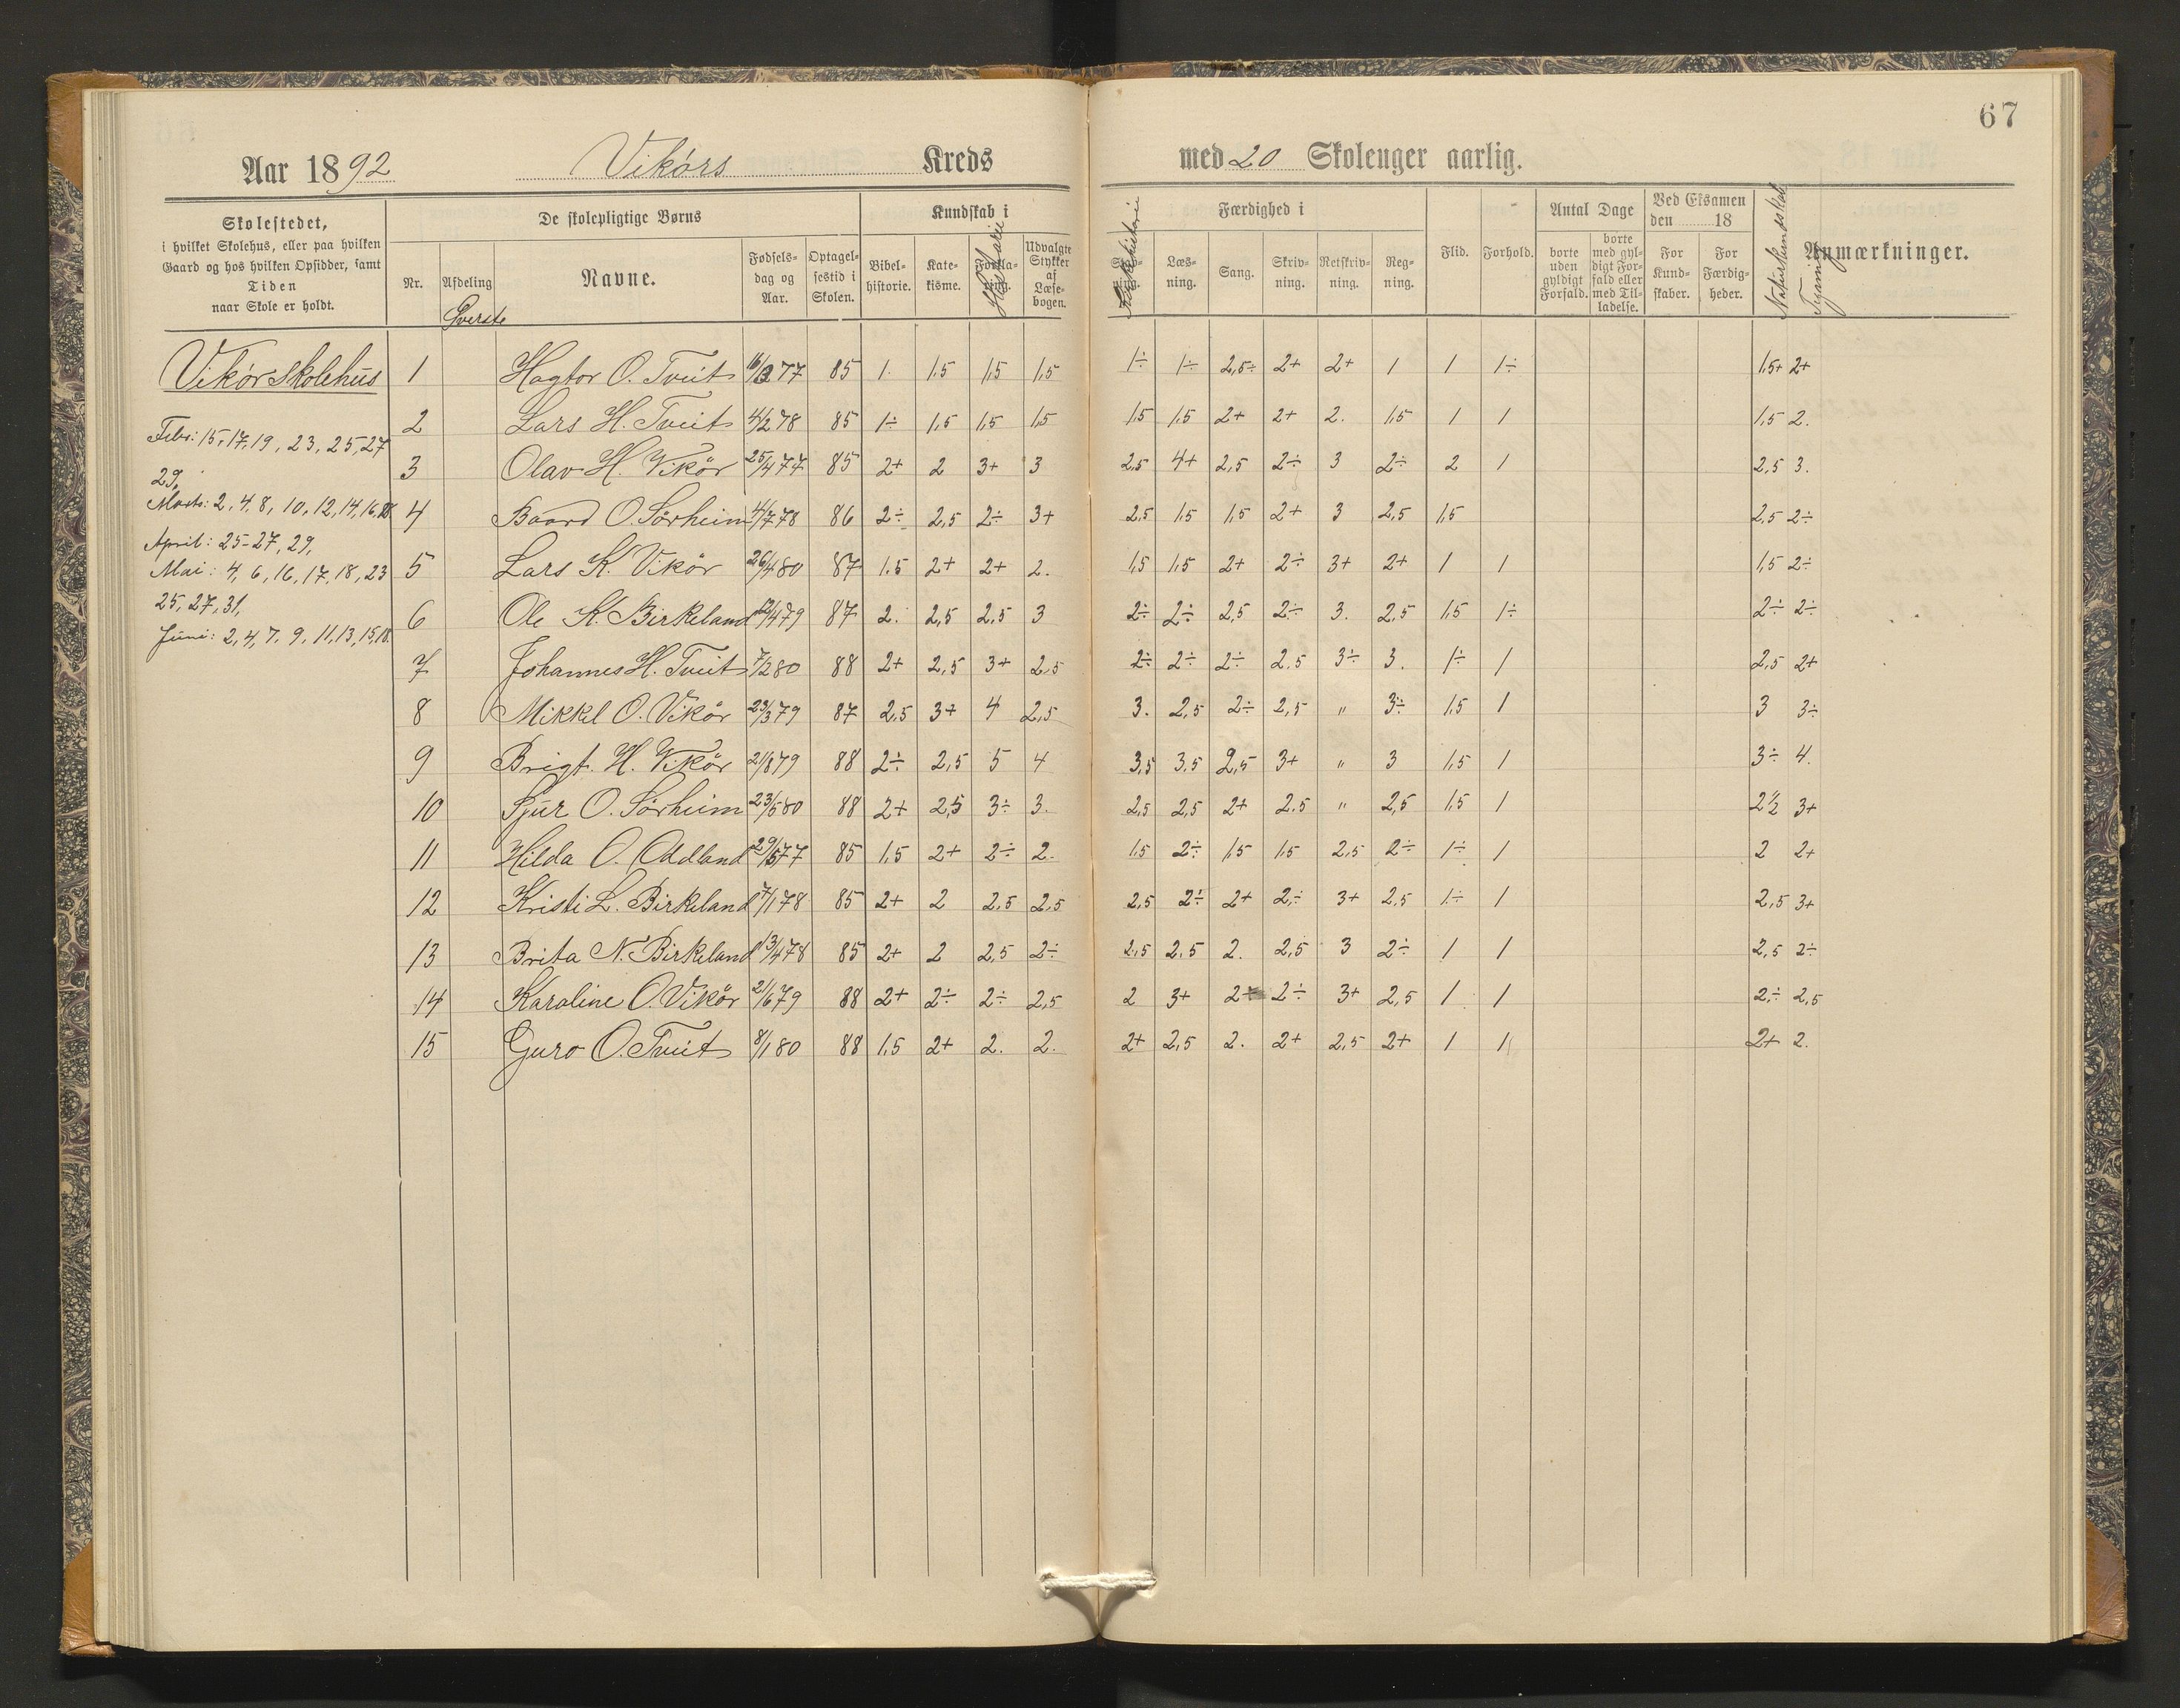 67
Aar 1892 Vikørs Kreds med 20 Skoleuger aarlig.
Skolestedet, i hvilket Skolehus, eller paa hvilken Gaard og hos hvilken Opsidder, samt Tiden naar Skole er holdt.
De skolepligtige Børns
Nr. Afdeling Navne. Fødsels-dag og Aar. Optagel-sestid i Skolen.
Øverste
Kundskab i
Bibel-historie. Kate-kisme. Historie Udvalgte Stykker af Læse-bogen.
Færdighed i
Kirkehistorie Læs-ning. Sang. Skriv-ning. Retskriv-ning. Reg-ning.
Flid. Forhold.
Antal Dage
borte uden gyldigt Forfald. borte med gyl-digt For-fald eller med Til-ladelse.
Ved Eksamen den 18
For Kund-skaber. For Færdig-heder.
Naturkundskab Tegning Anmærkninger.
Vikør skolehus
Febr: 15, 17, 19, 23, 25, 27
29,
Marts: 2, 4, 8, 10, 12, 14, 16, 18
April: 25-27, 29,
Mai: 4, 6, 16, 17, 18, 23
25, 27, 31,
Juni: 2, 4, 7, 9, 11, 13, 15, 18.
1 Hagtor O. Tveit 16/3 77 85 1. 1.5 1,5 1,5 1÷ 1÷ 2,5÷ 2+ 2+ 1 1 1÷ 1.5+ 2+
2 Lars H. Tveit 4/2 78 85 1÷ 1,5 1,5 1,5 1,5 1,5 2+ 2+ 2. 1,5 1 1 1,5 2.
3 Olav H. Vikør 25/4 77 85 2+ 2 3+ 3 2,5 4+ 2,5 2÷ 3 2÷ 2 1 2,5 3.
4 Baard O. Sørheim 4/7 78 86 2÷ 2,5 2÷ 3+ 2,5 1,5 1,5 2+ 3 2,5 1,5 2,5 2÷
5 Lars K. Vikør 26/4 80 87 1.5 2+ 2+ 2. 1,5 1,5 2+ 2÷ 3+ 2+ 1 1 1,5 2÷
6 Ole K. Birkeland 12/4 79 87 2. 2,5 2,5 3 2÷ 2÷ 2,5 2÷ 3. 2,5 1,5 1÷ 2÷ 2÷
7 Johannes H. Tveit 7/2 80 88 2+ 2,5 3+ 2,5 2÷ 2÷ 2÷ 2.5 3÷ 3. 1÷ 1 2,5 2+
8 Mikkel O. Vikør 23/3 79 87 2,5 3+ 4 2,5 3. 2,5 2÷ 2,5 " 3÷ 1,5 1 3 3÷
9 Brigt. H. Vikør 21/8 79 88 2÷ 2,5 5 4 3,5 3,5 2,5 3+ " 3 1,5 1 3÷ 4.
10 Sjur O. Sørheim 23/5 80 88 2+ 2,5 3÷ 3. 2,5 2,5 2+ 2.5 " 2,5 1,5 1 2½ 3+
11 Hilda O. Aadland 29/5 77 85 1,5 2+ 2÷ 2. 1,5 2÷ 1,5 1,5 2,5 2÷ 1÷ 1 2 2+
12 Kristi L. Birkeland 7/1 78 85 2+ 2 2,5 2,5 2,5 2÷ 2+ 2÷ 3+ 2,5 1÷ 1 2,5 3+
13 Brita N. Birkeland 13/4 78 85 2+ 2 2,5 2÷ 2,5 2,5 2. 2,5 3 2÷ 1 1 2,5 2÷
14 Karoline O. Vikør 21/6 79 88 2+ 2÷ 2÷ 2,5 2 3+ 2+ 2÷ 3+ 2,5 1 1 2÷ 2,5
15 Guro O. Tveit 8/1 80 88 1,5 2+ 2. 2. 2+ 2,5 2. 2+ 2,5 2+ 1 1 2+ 2.